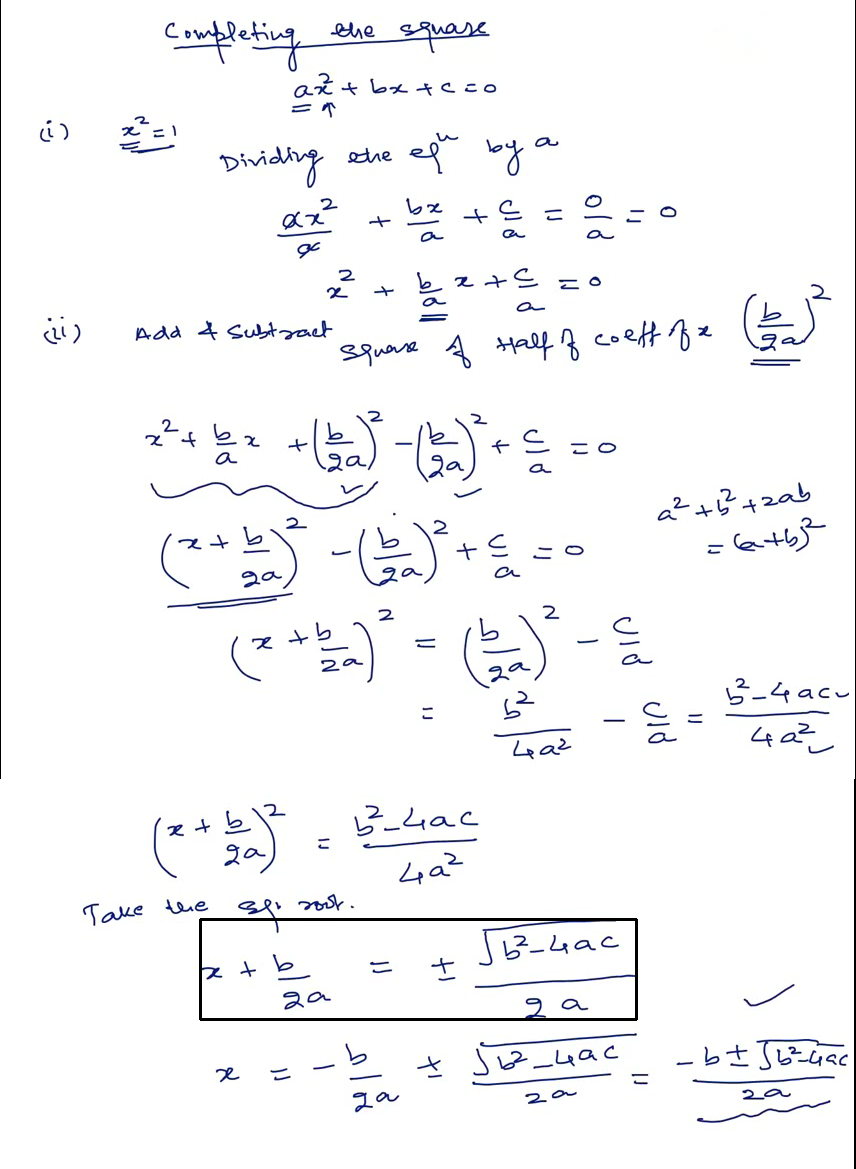 Completing the square
ax² + bx + c = 0
(i) x² = 1
Dividing the eqⁿ by a
ax²/a + bx/a + c/a = 0/a = 0
x² + b/a x + c/a = 0
(ii) Add & Subtract square of Half of coeff of x (b/2a)²
x² + b/a x + (b/2a)² - (b/2a)² + c/a = 0
a² + b² + 2ab
= (a+b)²
(x + b/2a)² - (b/2a)² + c/a = 0
(x + b/2a)² = (b/2a)² - c/a
= b²/4a² - c/a = b²-4ac/4a²
(x + b/2a)² = b²-4ac/4a²
Take the sq. root.
x + b/2a = ± √b²-4ac/2a
x = -b/2a ± √b²-4ac/2a = -b ± √b²-4ac/2a